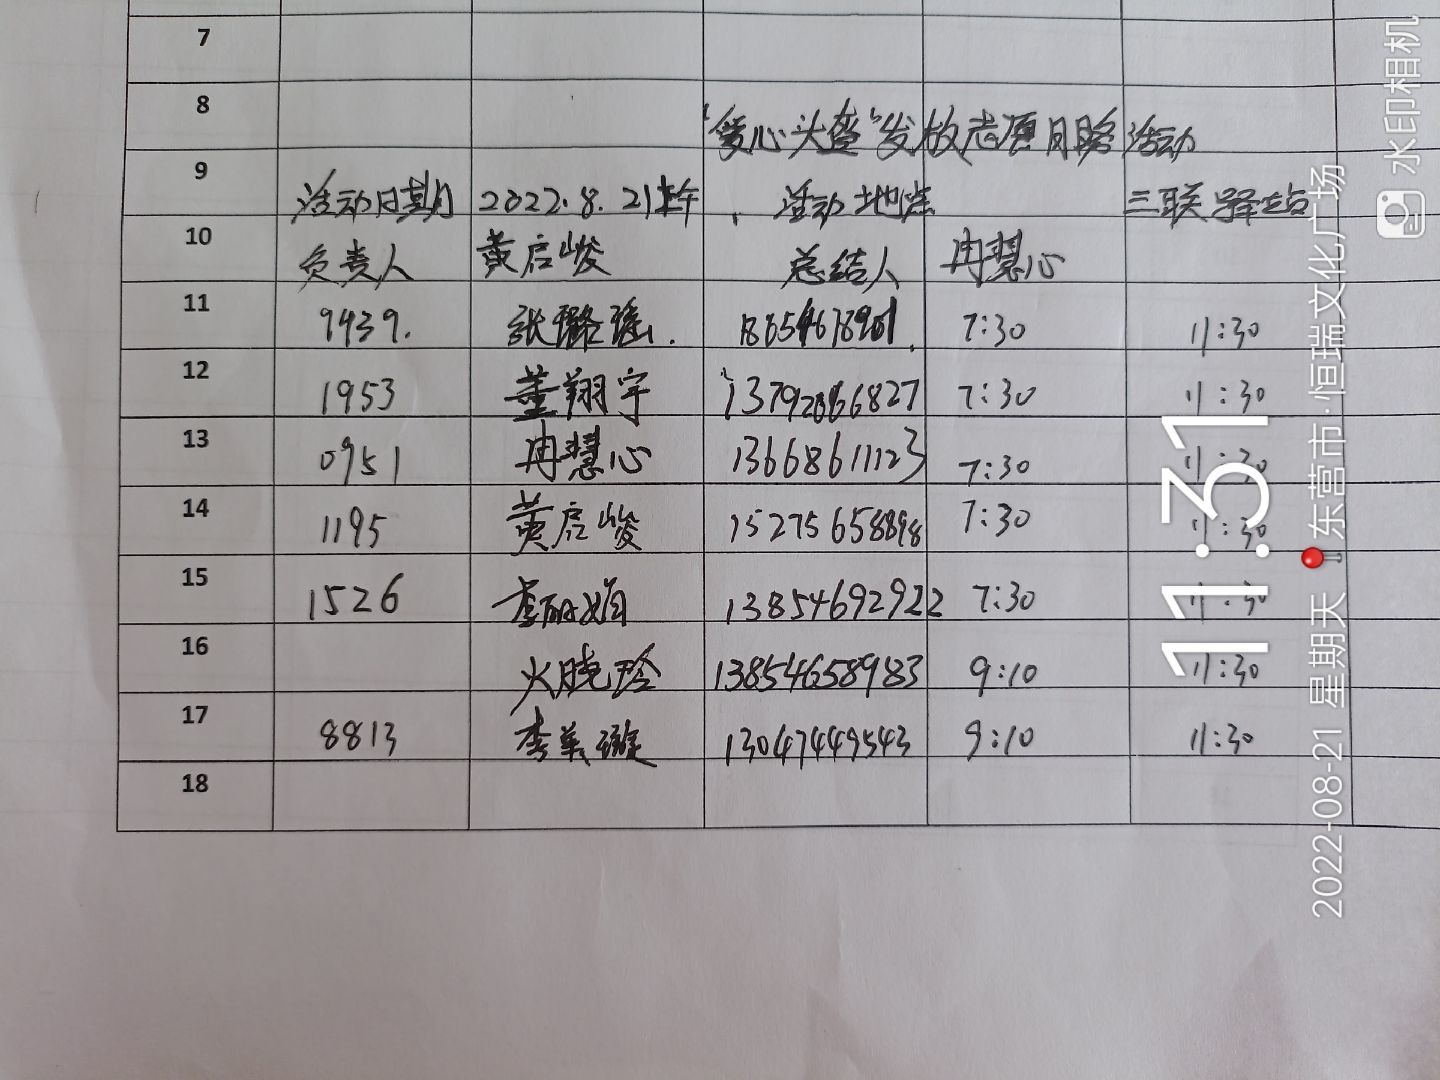 7
8
"爱心头盔"发放志愿服务活动
9 活动日期 2022.8.21上午 活动地点 三联驿站
10 负责人 黄启峻 总结人 冉慧心
11 9439. 张璐瑶. 7:30 11:30
12 1953 董翔宇 7:30 11:30
13 0951 冉慧心 13668611123 7:30 11:30
14 1195 黄启峻 15275658898 7:30 11:30
15 1526 李丽娟 13854692922 7:30 11:30
16 火晓玲 13854658983 9:10 11:30
17 8813 李美璇 13047449543 9:10 11:30
18
11:31
2022-08-21 星期天 东营市·恒瑞文化广场
水印相机